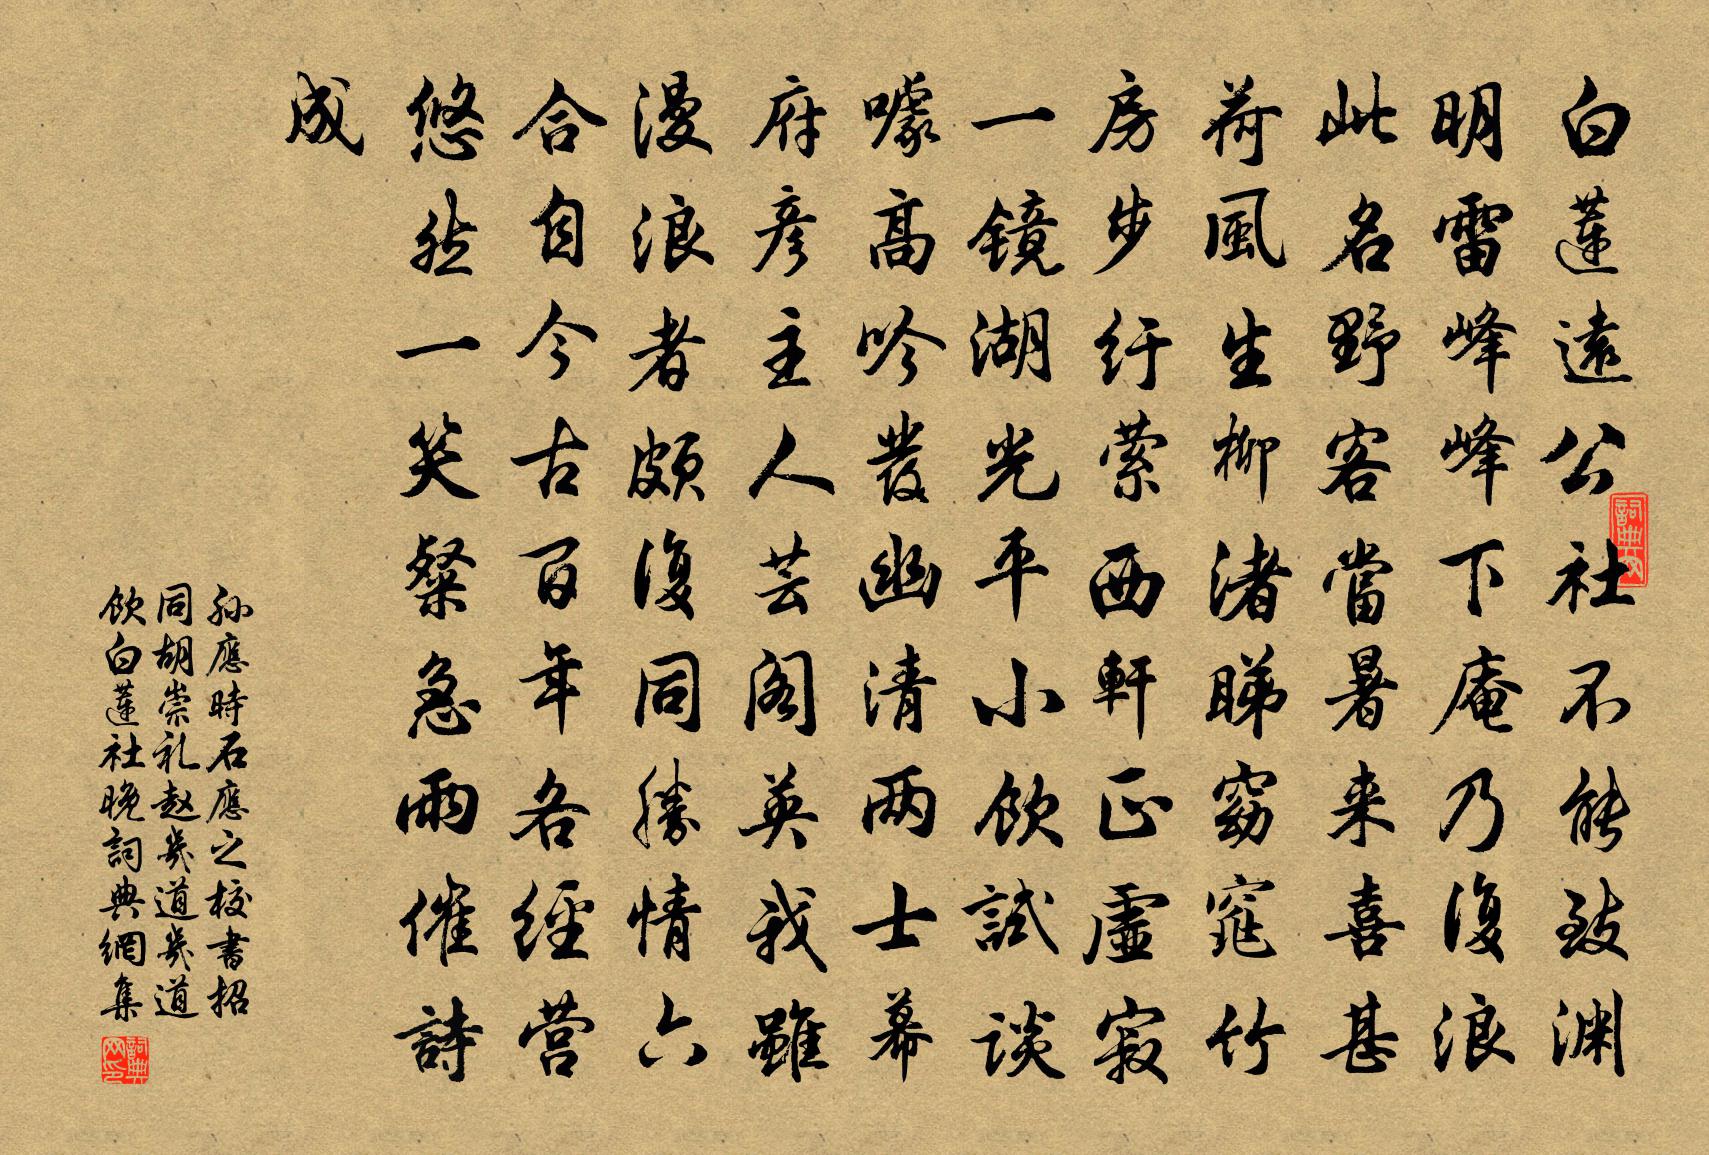 白蓮遠公社不能致渊
明雷峰峰下庵乃復浪
此名野客當暑来喜甚
荷風生柳渚睇窈窕竹
房步纡萦西軒正虛寂
一镜湖光平小飲試谈
噱高吟發幽清两士幕
府彦主人芸阁英我雖
漫浪者颇復同勝情六
合自今古百年各經营
悠然一笑粲急雨催詩
成
孙應時石應之校書招
同胡崇礼赵幾道幾道
飲白蓮社晚詞典網集
詞典网
詞典网印